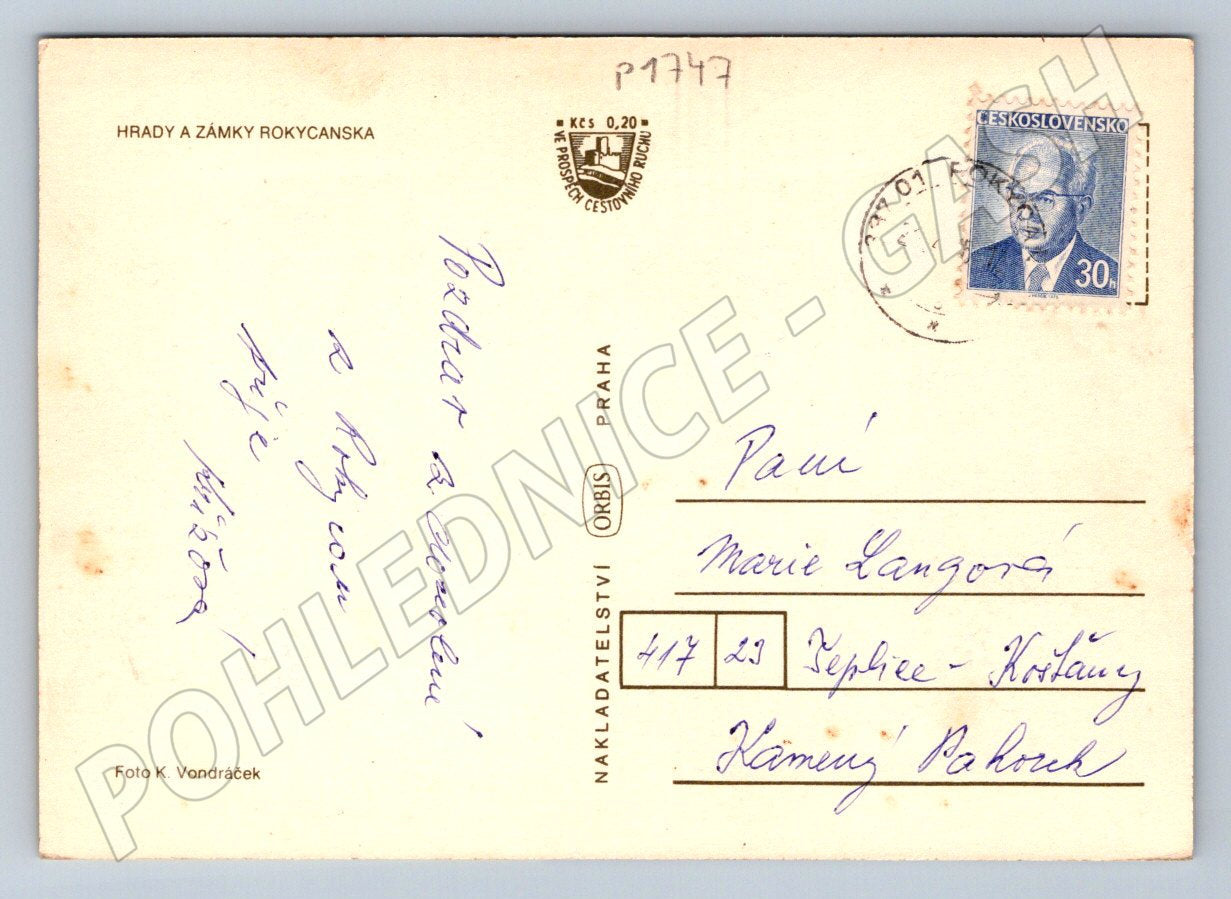 P1747
HRADY A ZÁMKY ROKYCANSKA
Kčs 0,20
VE PROSPĚCH CESTOVNÍHO RUCHU
ČESKOSLOVENSKO
30h
01 ROKYCAN
Pozdrav z
z Rokycan
NAKLADATELSTVÍ ORBIS PRAHA
Paní
Marie Langová
417 23 Teplice - Košťany
Kamený Pahorek
Foto K. Vondráček
POHLEDNICE - GASH